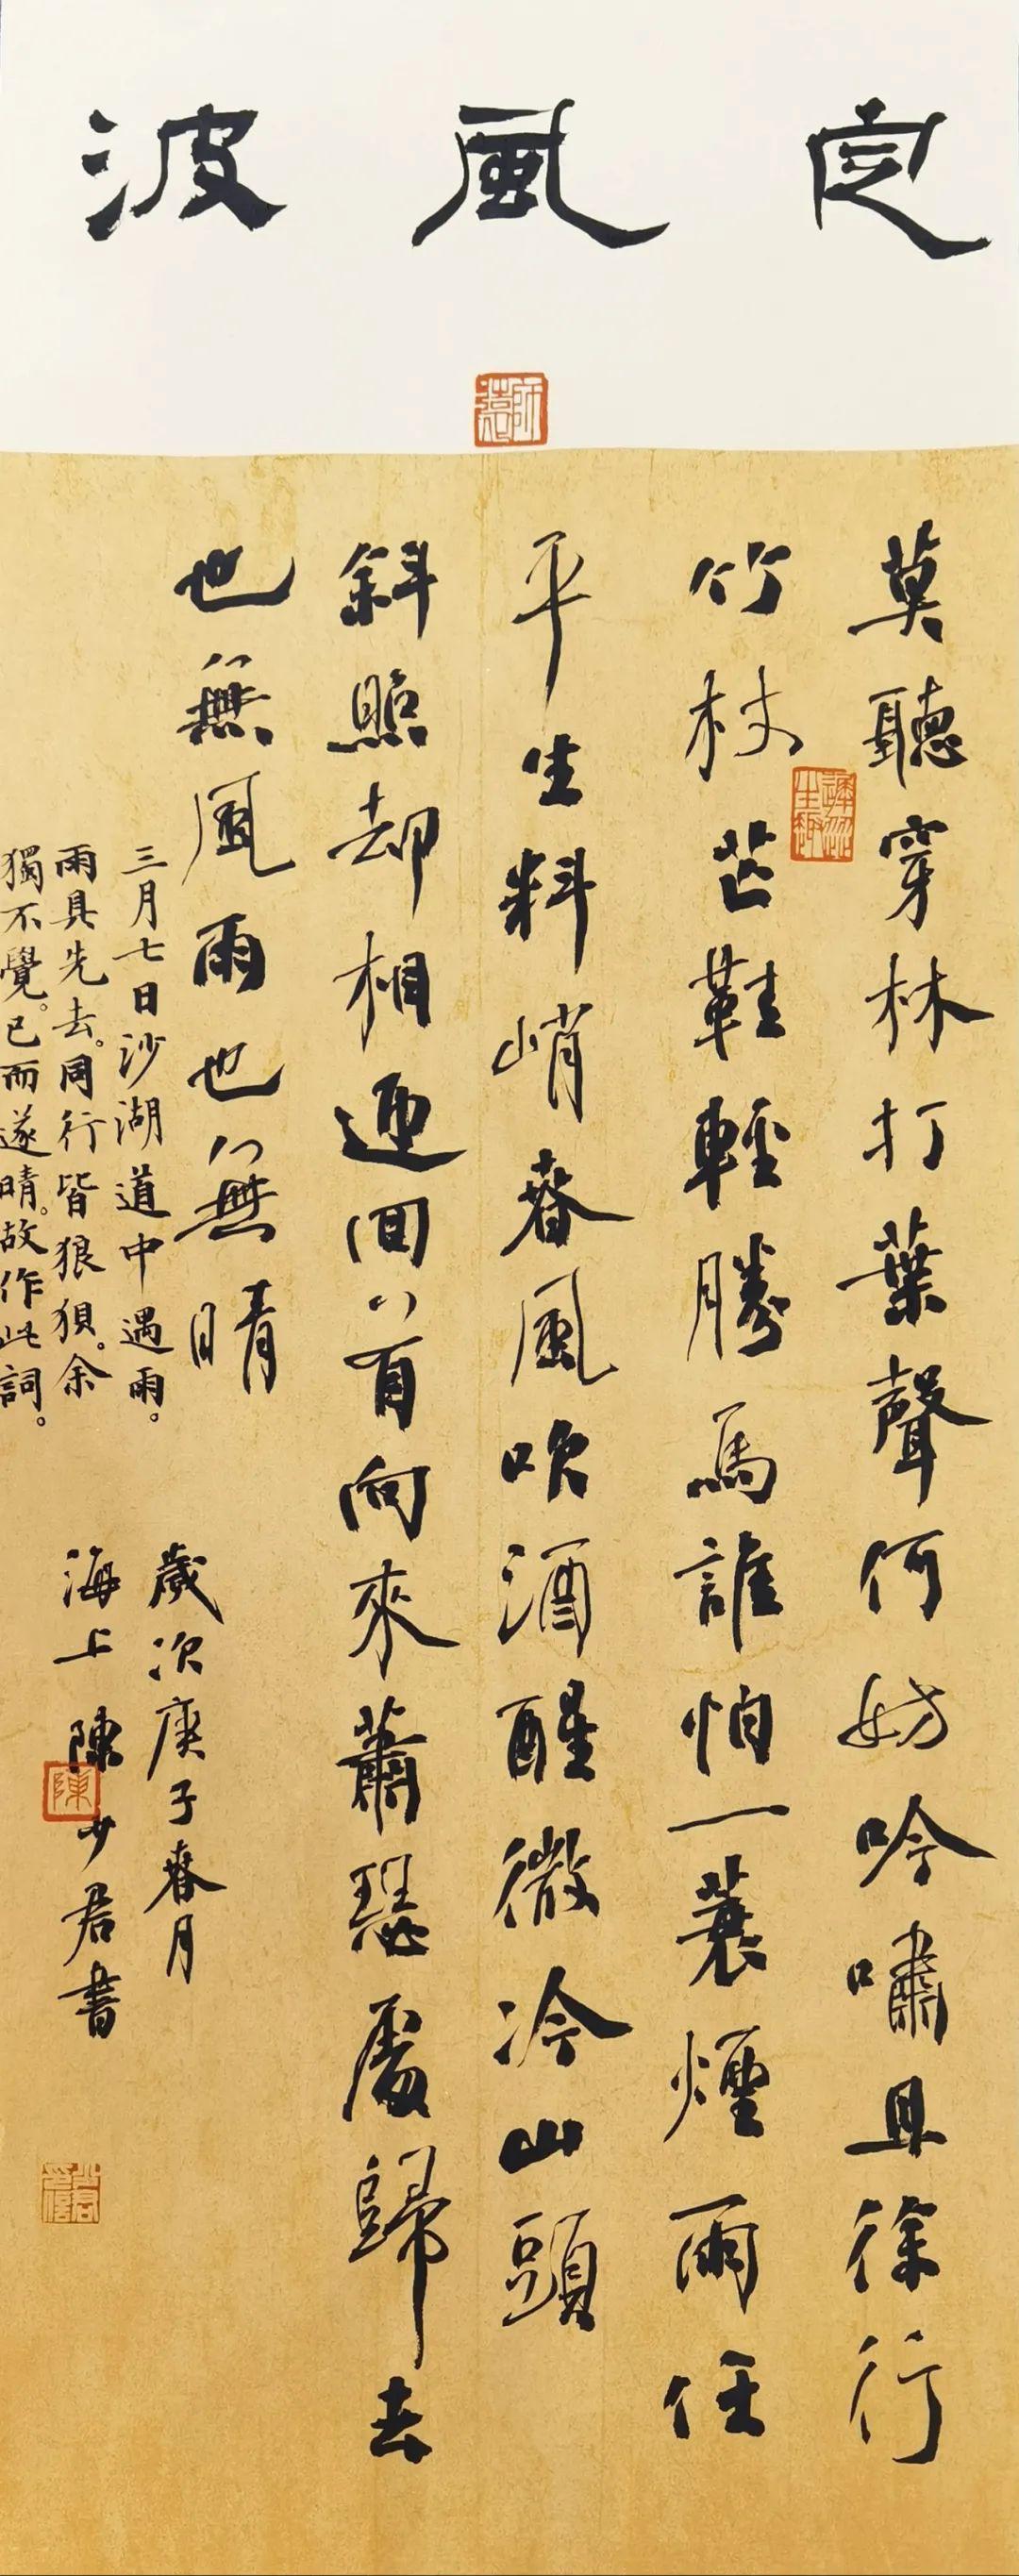 定風波
莫聽穿林打葉聲何妨吟嘯且徐行
竹杖芒鞋輕勝馬誰怕一蓑煙雨任
平生料峭春風吹酒醒微冷山頭
斜照却相迎回首向來蕭瑟處歸去
也無風雨也無晴
三月七日沙湖道中遇雨。
雨具先去。同行皆狼狽。余
獨不覺。已而遂晴。故作此詞。
歲次庚子春月
海上陳少君書
陳